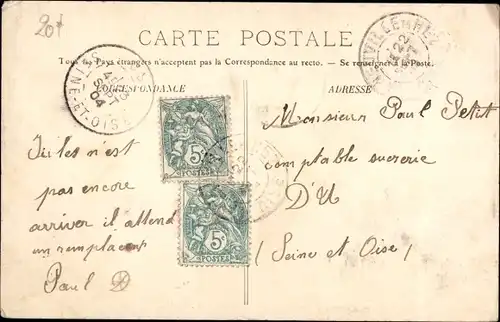 20f
CARTE POSTALE
Tous les Pays étrangers n'acceptent pas la Correspondance au recto. — Se renseigner à la Poste.
CORRESPONDANCE
ADRESSE
SEINE-ET-OISE
SEPT
04
5c
POSTES
5c
POSTES
Jules n'est
pas encore
arriver il attend
un remplacant
Paul
Monsieur Paul Petit
comptable sucrerie
D'U
(Seine et Oise)